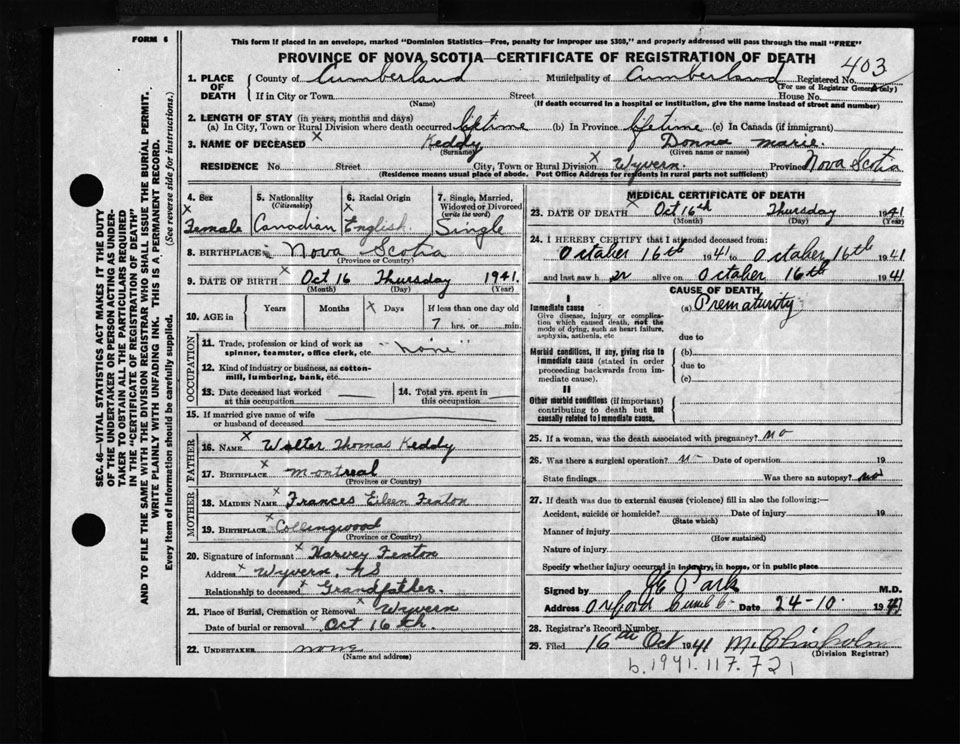 FORM 6
This form if placed in an envelope, marked "Dominion Statistics—Free, penalty for improper use $300," and properly addressed will pass through the mail "FREE"
PROVINCE OF NOVA SCOTIA—CERTIFICATE OF REGISTRATION OF DEATH
403
1. PLACE OF DEATH
County of Cumberland Municipality of Cumberland Registered No.
(For use of Registrar General only)
If in City or Town Street House No.
(Name) (If death occurred in a hospital or institution, give the name instead of street and number)
2. LENGTH OF STAY (in years, months and days)
(a) In City, Town or Rural Division where death occurred lifetime (b) In Province lifetime (c) In Canada (if immigrant)
3. NAME OF DECEASED x Keddy Donna marie.
(Surname) (Given name or names)
RESIDENCE No. Street City, Town or Rural Division x Wyvern. Province Nova Scotia
(Residence means usual place of abode. Post Office Address for residents in rural parts not sufficient)
4. Sex
x Female
5. Nationality
(Citizenship)
x Canadian
6. Racial Origin
x English.
7. Single, Married, Widowed or Divorced
(write the word)
Single
8. BIRTHPLACE Nova Scotia
(Province or Country)
9. DATE OF BIRTH x Oct 16 Thursday 1941.
(Month) (Day) (Year)
10. AGE in Years Months x Days If less than one day old
7 hrs. or min.
OCCUPATION
11. Trade, profession or kind of work as spinner, teamster, office clerk, etc. "none"
12. Kind of industry or business, as cotton-mill, lumbering, bank, etc.
13. Date deceased last worked at this occupation
14. Total yrs. spent in this occupation
15. If married give name of wife or husband of deceased
FATHER
16. NAME x Walter Thomas Keddy
17. BIRTHPLACE x montreal
(Province or Country)
MOTHER
18. MAIDEN NAME x Frances Eileen Fenton
19. BIRTHPLACE x Collingwood
(Province or Country)
20. Signature of informant x Harvey Fenton
Address x Wyvern, NS
Relationship to deceased x Grandfather
21. Place of Burial, Cremation or Removal x Wyvern
Date of burial or removal x Oct 16th.
22. UNDERTAKER none
(Name and address)
MEDICAL CERTIFICATE OF DEATH
23. DATE OF DEATH x Oct 16th Thursday 1941
(Month) (Day)
24. I HEREBY CERTIFY that I attended deceased from:
October 16th 1941 to October 16th 1941
and last saw her alive on October 16th 1941
CAUSE OF DEATH
I
Immediate cause
Give disease, injury or complication which caused death, not the mode of dying, such as heart failure, asphyxia, asthenia, etc
(a) Prematurity
due to
Morbid conditions, if any, giving rise to immediate cause (stated in order proceeding backwards from immediate cause).
(b)
due to
(c)
II
Other morbid conditions (if important) contributing to death but not causally related to immediate cause.
25. If a woman, was the death associated with pregnancy? no
26. Was there a surgical operation? no Date of operation 19
State findings Was there an autopsy? no
27. If death was due to external causes (violence) fill in also the following:—
Accident, suicide or homicide? Date of injury 19
(State which)
Manner of injury
(How sustained)
Nature of injury
Specify whether injury occurred in industry, in home, or in public place
Signed by Park M.D.
Address Oxford Date 24-10. 1941
28. Registrar's Record Number
29. Filed 16th Oct 1941 M. Chisholm
(Division Registrar)
b.1941.117.721
SEC. 46—VITAL STATISTICS ACT MAKES IT THE DUTY
OF THE UNDERTAKER OR PERSON ACTING AS UNDER-
TAKER TO OBTAIN ALL THE PARTICULARS REQUIRED
IN THE "CERTIFICATE OF REGISTRATION OF DEATH"
AND TO FILE THE SAME WITH THE DIVISION REGISTRAR WHO SHALL ISSUE THE BURIAL PERMIT.
WRITE PLAINLY WITH UNFADING INK. THIS IS A PERMANENT RECORD.
Every item of Information should be carefully supplied. (See reverse side for instructions.)